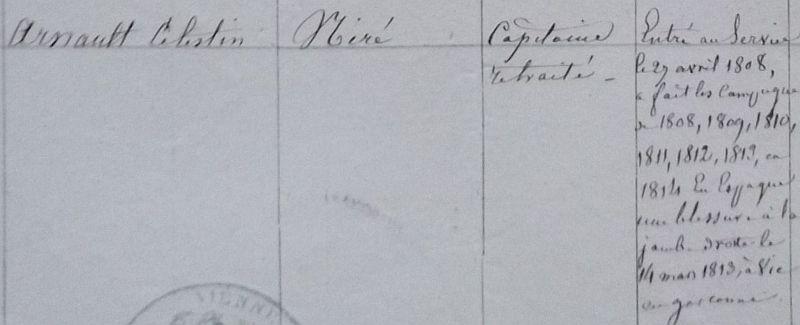 Arnault Célestin
Miré
Capitaine
retraité -
Entré au Service
le 27 avril 1808,
a fait les Campagnes
de 1808, 1809, 1810,
1811, 1812, 1813, en
1814 En Espagne
une blessure à la
jambe droite le
14 mars 1813, à Vic
en gasconne.
VIENNE